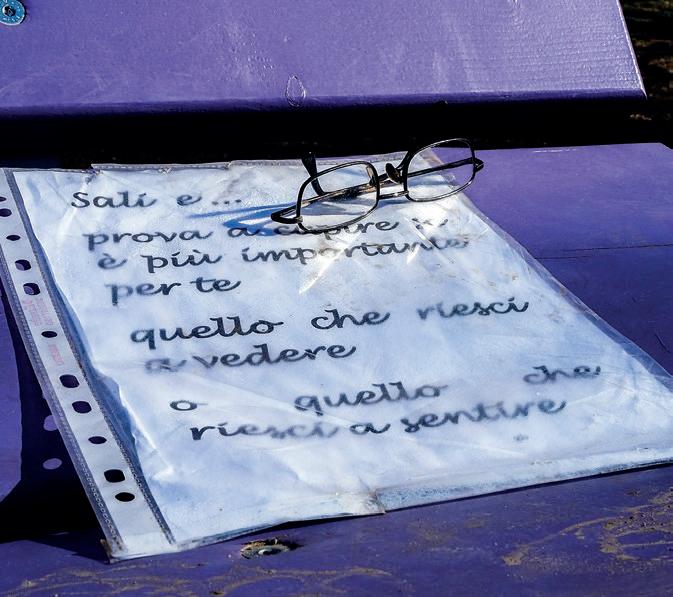 Sali e...
prova a capire se
è più importante
per te
quello che riesci
a vedere
o quello che
riesci a sentire